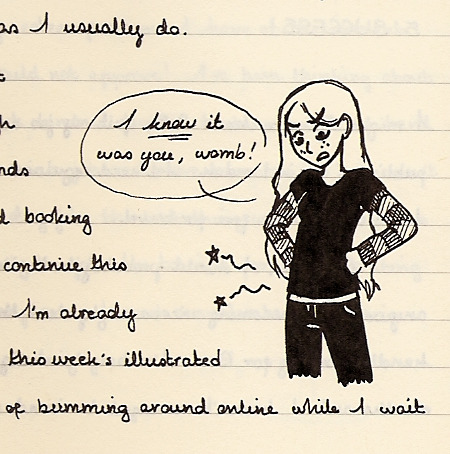 as I usually do.
t
I know it
was you, womb!
nds
d booking
continue this
I'm already
this week's illustrated
of bumming around online while I wait